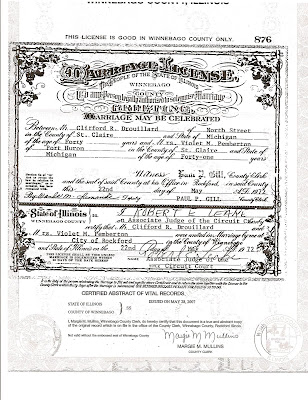 WINNEBAGO COUNTY, ILLINOIS
THIS LICENSE IS GOOD IN WINNEBAGO COUNTY ONLY. 876
MARRIAGE LICENSE
PEOPLE OF THE STATE OF ILLINOIS
WINNEBAGO
COUNTY
To any Person legally authorized to solemnize Marriage
GREETING
MARRIAGE MAY BE CELEBRATED
Between Mr. Clifford R. Drouillard of North Street
in the County of St. Claire and State of Michigan
of the age of Forty years and Mrs. Violet M. Pemberton
of Port Huron in the County of St. Claire and State of
Michigan of the age of Forty-one years
Witness Paul P. Gill, County Clerk
and the seal of said County at his Office in Rockford in said County
this 22nd day of May 1972
PAUL P. GILL County Clerk
Deputy
State of Illinois
WINNEBAGO COUNTY
I ROBERT E.
an Associate Judge of the Circuit Court
certify that Mr. Clifford R. Drouillard
and Mrs. Violet M. Pemberton were united in Marriage by me at
City of Rockford in the County of Winnebago
and State of Illinois on the 22nd Day of May 1972
Associate Judge of the
Circuit Court
CERTIFIED ABSTRACT OF VITAL RECORDS.
STATE OF ILLINOIS
COUNTY OF WINNEBAGO
SS
ISSUED ON MAY 30, 2007
I, Margie M. Mullins, Winnebago County Clerk, do hereby certify that this document is a true and abstract copy
of the original record which is on file in the office of the County Clerk, Winnebago County, Rockford, Illinois
Not valid without the embossed seal of Winnebago County
Margie M. Mullins
MARGIE M. MULLINS
COUNTY CLERK